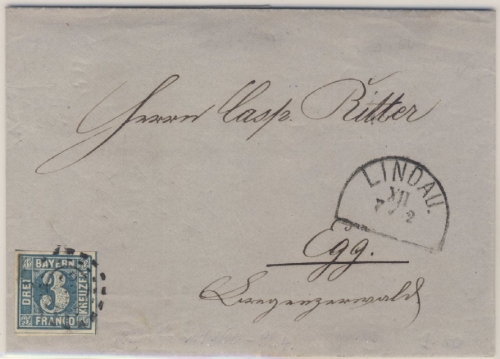 Herrn Casp. Ritter
LINDAU.
XII
2
Egg.
Bregenzerwald
BAYERN
DREI
3
KREUZER
FRANCO